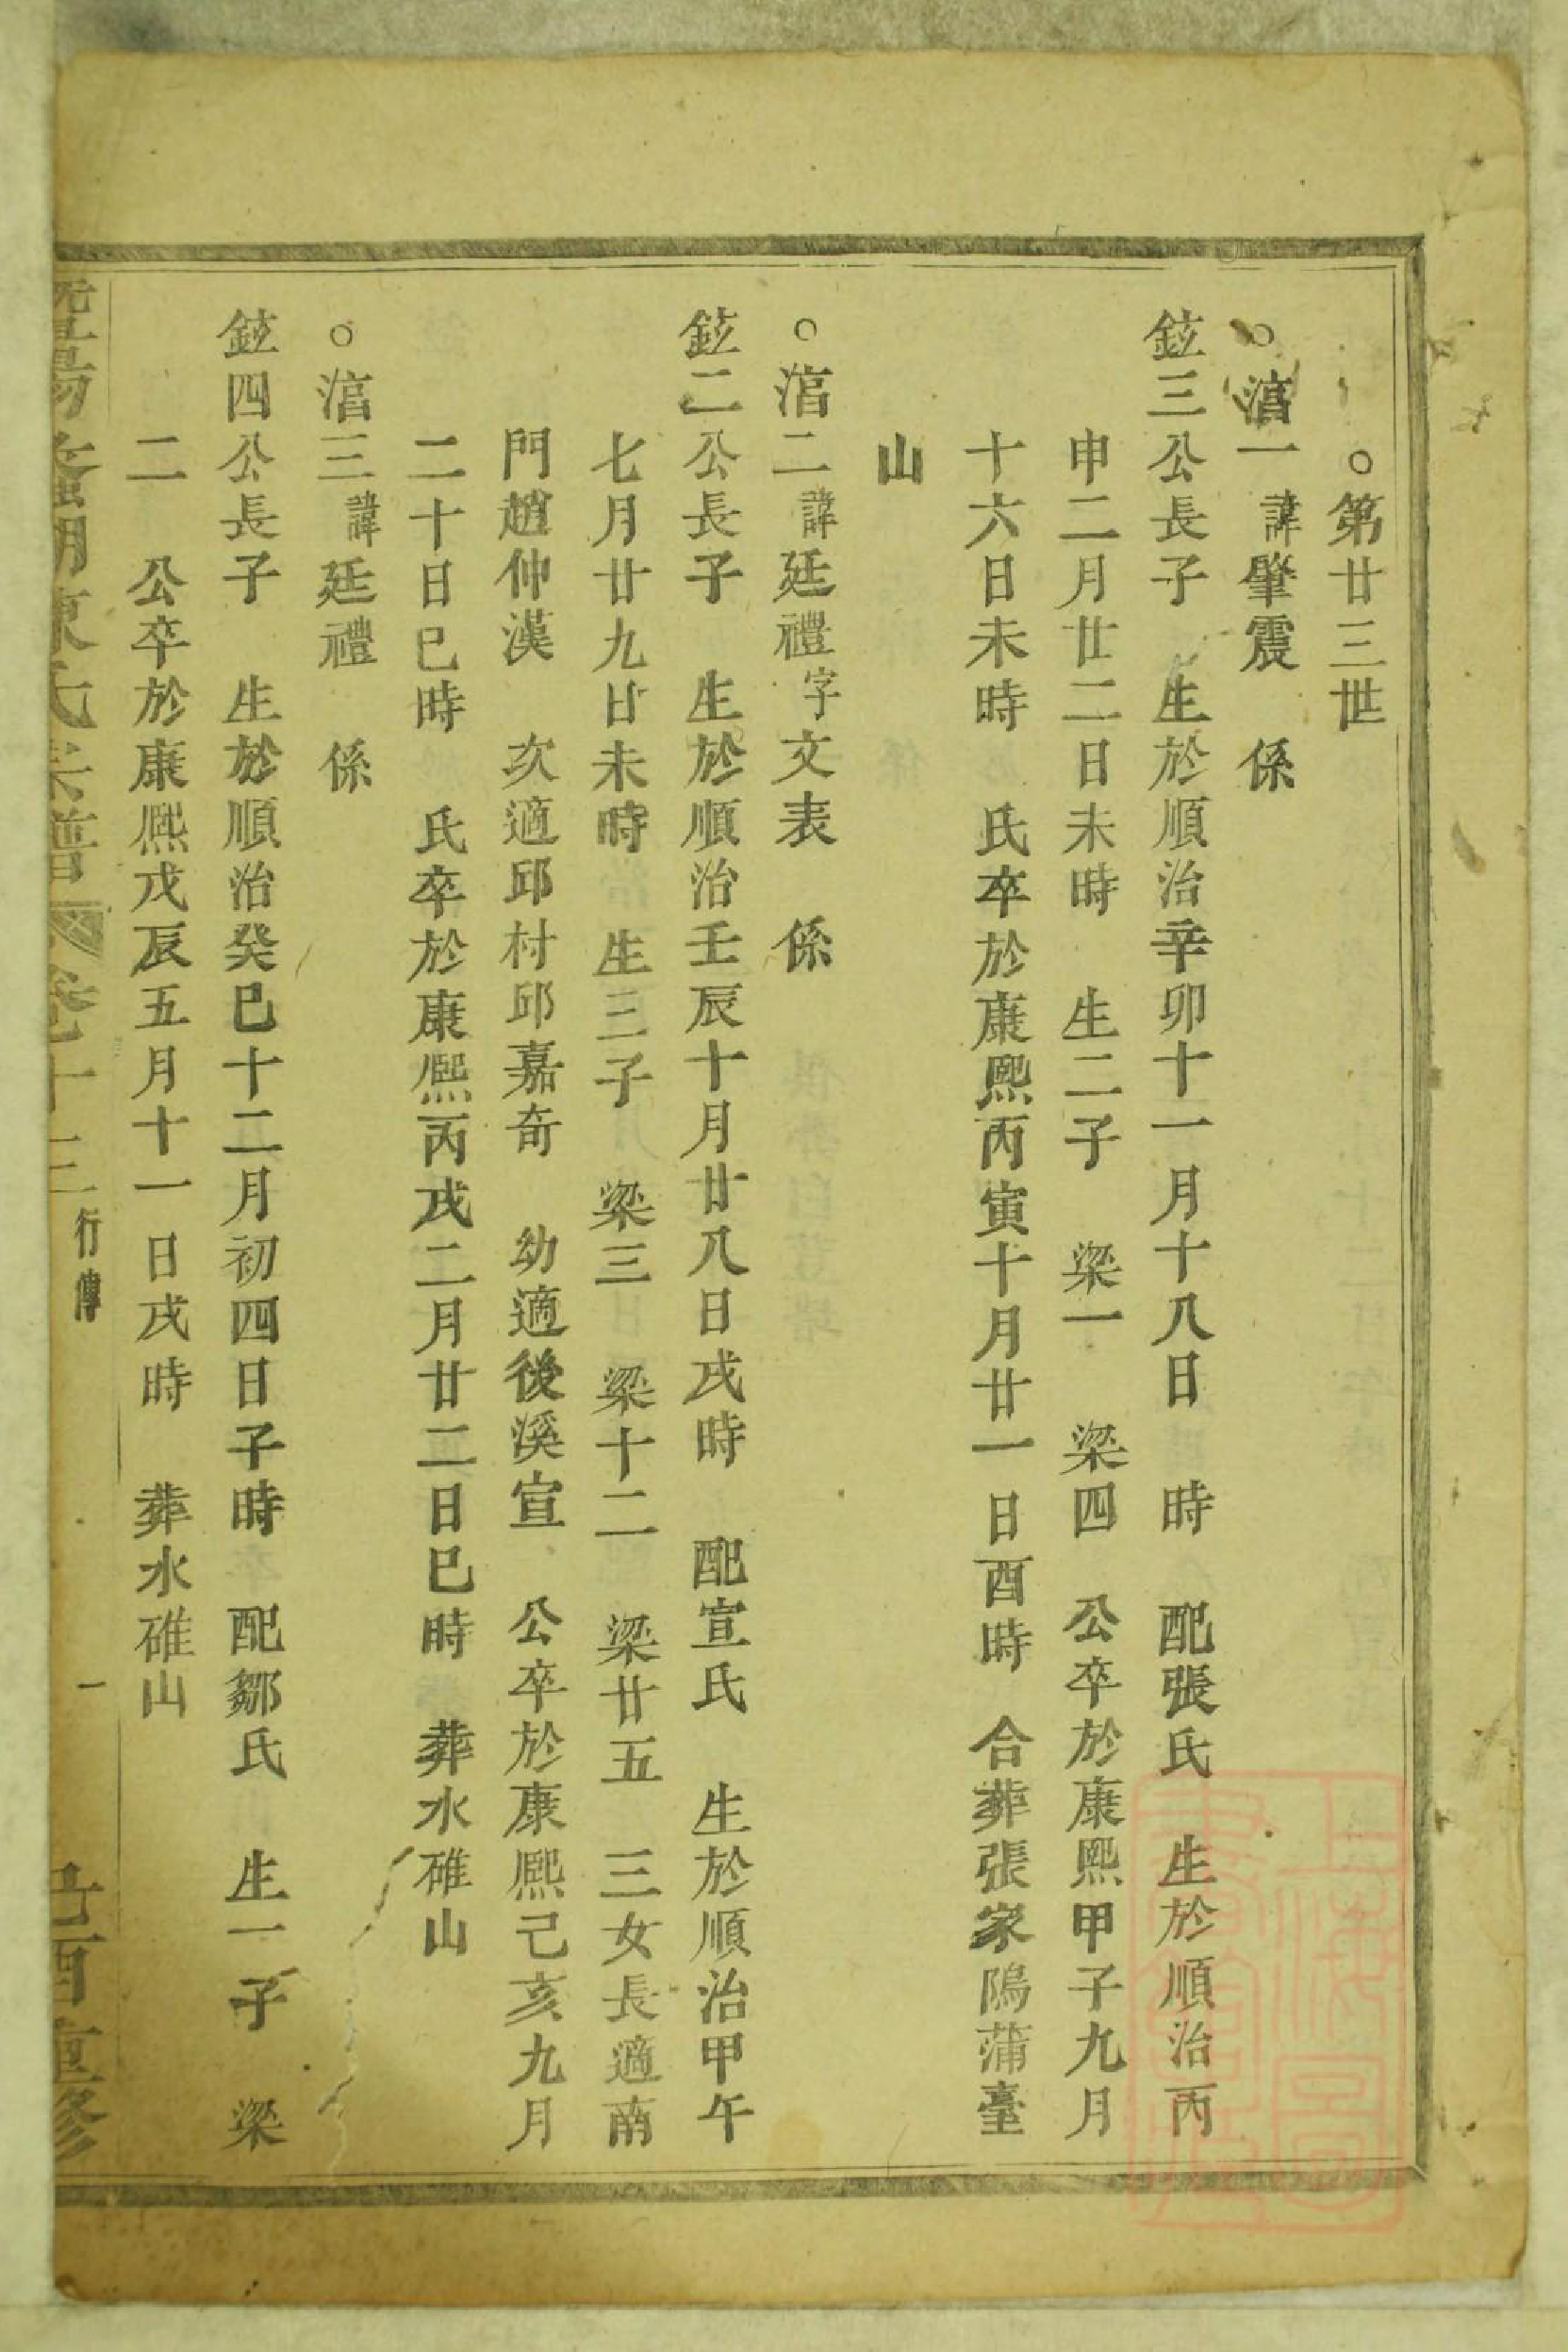 ○第廿三世
○㵮一諱肇震　係
鉉三公長子　生於順治辛卯十一月十八日　時　配張氏　生於順治丙
申二月廿二日未時　生二子　梁一　梁四　公卒於康熙甲子九月
十六日未時　氏卒於康熙丙寅十月廿一日酉時　合葬張家隝蒲臺
山
○㵮二諱廷禮字文表　係
鉉二公長子　生於順治壬辰十月廿八日戌時　配宣氏　生於順治甲午
七月廿九日未時　生三子　梁三　梁十二　梁廿五　三女長適南
門趙仲漢　次適邱村邱嘉奇　幼適後溪宣　公卒於康熙己亥九月
二十日巳時　氏卒於康熙丙戌二月廿二日巳時　葬水碓山
○㵮三諱廷禮　係
鉉四公長子　生於順治癸巳十二月初四日子時　配鄒氏　生一子　梁
二　公卒於康熙戊辰五月十一日戌時　葬水碓山
暨陽　湖陳氏宗譜　卷十三　行傳　一　己酉重修
上海圖書館藏